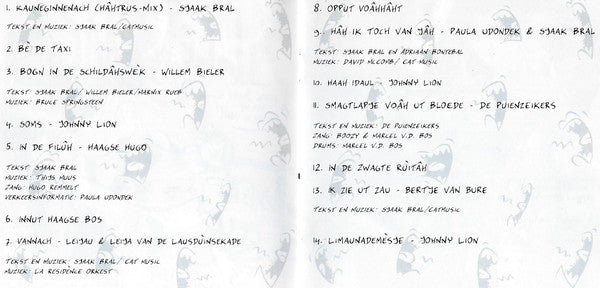 1. KAUNEGINNENACH (HÂHTRUS-MIX) - SJAAK BRAL
TEKST EN MUZIEK: SJAAK BRAL/CATMUSIC
2. BÈ DE TAXI
3. BOGN IN DE SCHILDÂHSWÈK - WILLEM BIELER
TEKST: SJAAK BRAL/ WILLEM BIELER/MARNIX RUEB
MUZIEK: BRUCE SPRINGSTEEN
4. SOMS - JOHNNY LION
5. IN DE FILÛH - HAAGSE HUGO
TEKST: SJAAK BRAL
MUZIEK: THIJS MUUS
ZANG: HUGO REMMELT
VERKEERSINFORMATIE: PAULA UDONDEK
6. INNUT HAAGSE BOS
7. VANNACH - LEIJAU & LEIJA VAN DE LAUSDÙINSEKADE
TEKST EN MUZIEK: SJAAK BRAL/ CAT MUSIC
MUZIEK: LA RESIDENCE ORKEST
8. OPPUT VOÂHHÂHT
9. HÂH IK TOCH VAN JÂH - PAULA UDONDEK & SJAAK BRAL
TEKST: SJAAK BRAL EN ADRIAAN BONTEBAL
MUZIEK: DAVID MCCOMB/ CAT MUSIC
10. HAAH IDAUL - JOHNNY LION
11. SMAGTLAPJE VOÂH UT BLOEDE - DE PUIENZEIKERS
TEKST EN MUZIEK: DE PUIENZEIKERS
ZANG: BOOZY & MARCEL V.D. BOS
DRUMS: MARCEL V.D. BOS
12. IN DE ZWAGTE RÙITÂH
13. IK ZIE UT ZAU - BERTJE VAN BURE
TEKST EN MUZIEK: SJAAK BRAL/CATMUSIC
14. LIMAUNADEMÈSJE - JOHNNY LION